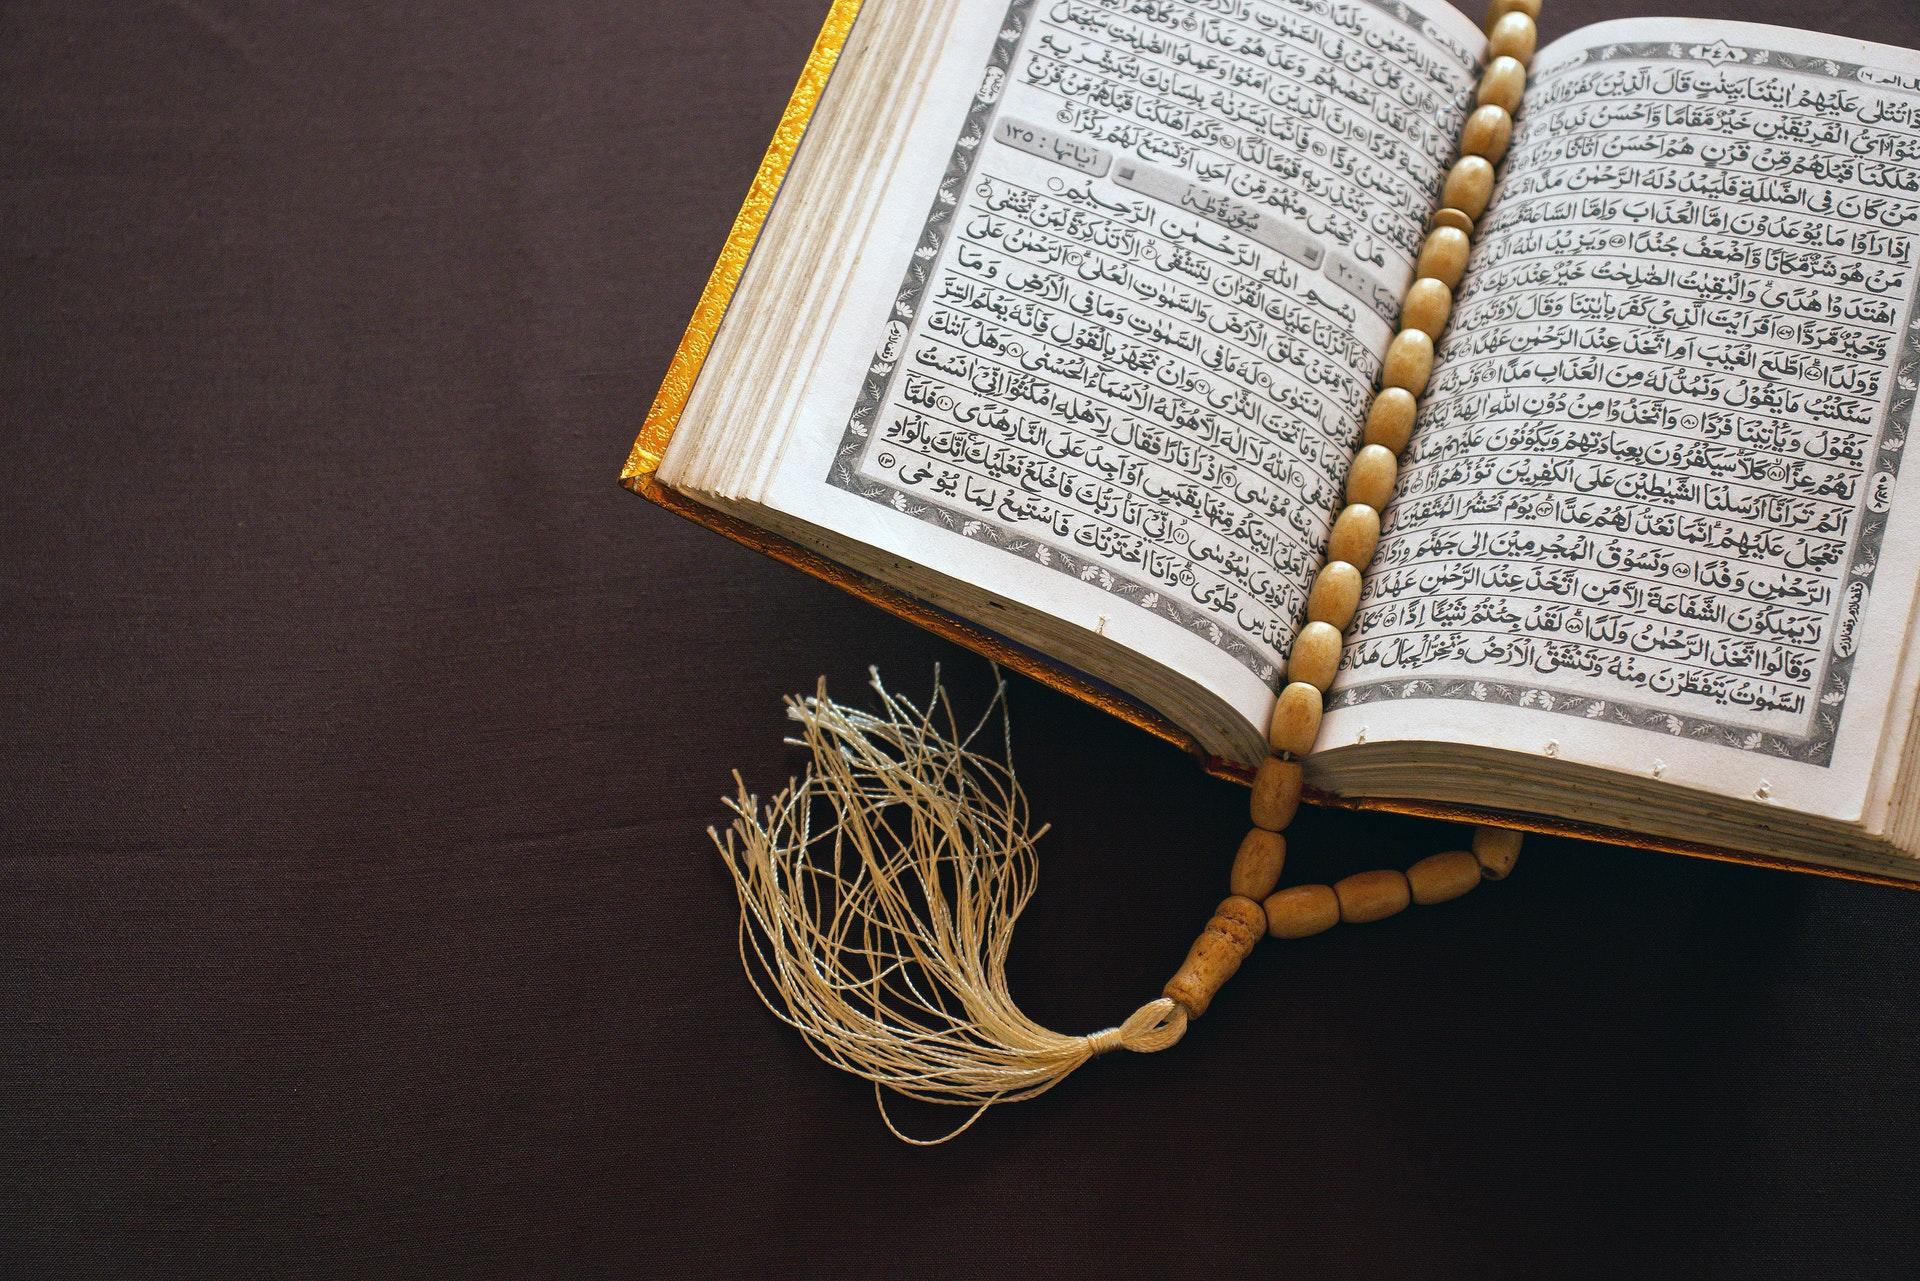 ٢٤٨
تُتْلٰى عَلَيْهِمْ اٰيٰتُنَا بَيِّنٰتٍ قَالَ الَّذِيْنَ كَفَرُوْا لِلَّذِيْنَ
اَيُّ الْفَرِيْقَيْنِ خَيْرٌ مَّقَامًا وَّاَحْسَنُ نَدِيًّا ﴿٧٣﴾
اَهْلَكْنَا قَبْلَهُمْ مِّنْ قَرْنٍ هُمْ اَحْسَنُ اَثَاثًا وَّرِءْيًا
مَنْ كَانَ فِي الضَّلٰلَةِ فَلْيَمْدُدْ لَهُ الرَّحْمٰنُ مَدًّا
اِذَا رَاَوْا مَا يُوْعَدُوْنَ اِمَّا الْعَذَابَ وَاِمَّا السَّاعَةَ
مَنْ هُوَ شَرٌّ مَّكَانًا وَّاَضْعَفُ جُنْدًا ﴿٧٥﴾ وَيَزِيْدُ اللّٰهُ الَّذِيْنَ
اهْتَدَوْا هُدًى وَالْبٰقِيٰتُ الصّٰلِحٰتُ خَيْرٌ عِنْدَ رَبِّكَ
وَّخَيْرٌ مَّرَدًّا ﴿٧٦﴾ اَفَرَءَيْتَ الَّذِيْ كَفَرَ بِاٰيٰتِنَا وَقَالَ لَاُوْتَيَنَّ مَا
وَّوَلَدًا ﴿٧٧﴾ اَطَّلَعَ الْغَيْبَ اَمِ اتَّخَذَ عِنْدَ الرَّحْمٰنِ عَهْدًا ﴿٧٨﴾
سَنَكْتُبُ مَا يَقُوْلُ وَنَمُدُّ لَهٗ مِنَ الْعَذَابِ مَدًّا ﴿٧٩﴾ وَّنَرِثُهٗ
يَقُوْلُ وَيَاْتِيْنَا فَرْدًا ﴿٨٠﴾ وَاتَّخَذُوْا مِنْ دُوْنِ اللّٰهِ اٰلِهَةً
لَهُمْ عِزًّا ﴿٨١﴾ كَلَّا سَيَكْفُرُوْنَ بِعِبَادَتِهِمْ وَيَكُوْنُوْنَ عَلَيْهِمْ ضِدًّا
اَلَمْ تَرَ اَنَّا اَرْسَلْنَا الشَّيٰطِيْنَ عَلَى الْكٰفِرِيْنَ تَؤُزُّهُمْ اَزًّا ﴿٨٣﴾
تَعْجَلْ عَلَيْهِمْ اِنَّمَا نَعُدُّ لَهُمْ عَدًّا ﴿٨٤﴾ يَوْمَ نَحْشُرُ الْمُتَّقِيْنَ اِلَى
الرَّحْمٰنِ وَفْدًا ﴿٨٥﴾ وَّنَسُوْقُ الْمُجْرِمِيْنَ اِلٰى جَهَنَّمَ وِرْدًا
لَا يَمْلِكُوْنَ الشَّفَاعَةَ اِلَّا مَنِ اتَّخَذَ عِنْدَ الرَّحْمٰنِ عَهْدًا
وَقَالُوا اتَّخَذَ الرَّحْمٰنُ وَلَدًا ﴿٨٨﴾ لَقَدْ جِئْتُمْ شَيْئًا اِدًّا ﴿٨٩﴾ تَكَادُ
السَّمٰوٰتُ يَتَفَطَّرْنَ مِنْهُ وَتَنْشَقُّ الْاَرْضُ وَتَخِرُّ الْجِبَالُ هَدًّا
دَعَوْا لِلرَّحْمٰنِ وَلَدًا ﴿٩١﴾
اِنْ كُلُّ مَنْ فِي السَّمٰوٰتِ وَالْاَرْضِ
لَقَدْ اَحْصٰىهُمْ وَعَدَّهُمْ عَدًّا ﴿٩٤﴾ وَكُلُّهُمْ
فَرْدًا ﴿٩٥﴾ اِنَّ الَّذِيْنَ اٰمَنُوْا وَعَمِلُوا الصّٰلِحٰتِ سَيَجْعَلُ
الرَّحْمٰنُ وُدًّا ﴿٩٦﴾ فَاِنَّمَا يَسَّرْنٰهُ بِلِسَانِكَ لِتُبَشِّرَ بِهِ
وَتُنْذِرَ بِهٖ قَوْمًا لُّدًّا ﴿٩٧﴾ وَكَمْ اَهْلَكْنَا قَبْلَهُمْ مِّنْ قَرْنٍ
هَلْ تُحِسُّ مِنْهُمْ مِّنْ اَحَدٍ اَوْ تَسْمَعُ لَهُمْ رِكْزًا ﴿٩٨﴾
٢٠: سُوْرَةُ طٰهٰ اٰيَاتُهَا: ١٣٥
بِسْمِ اللّٰهِ الرَّحْمٰنِ الرَّحِيْمِ
مَا اَنْزَلْنَا عَلَيْكَ الْقُرْاٰنَ لِتَشْقٰى ﴿٢﴾ اِلَّا تَذْكِرَةً لِّمَنْ يَّخْشٰى ﴿٣﴾
مِّمَّنْ خَلَقَ الْاَرْضَ وَالسَّمٰوٰتِ الْعُلٰى ﴿٤﴾ اَلرَّحْمٰنُ عَلَى
اسْتَوٰى ﴿٥﴾ لَهٗ مَا فِي السَّمٰوٰتِ وَمَا فِي الْاَرْضِ وَمَا
وَمَا تَحْتَ الثَّرٰى ﴿٦﴾ وَاِنْ تَجْهَرْ بِالْقَوْلِ فَاِنَّهٗ يَعْلَمُ السِّرَّ
اَللّٰهُ لَا اِلٰهَ اِلَّا هُوَ لَهُ الْاَسْمَآءُ الْحُسْنٰى ﴿٨﴾ وَهَلْ اَتٰىكَ
مُوْسٰى ﴿٩﴾ اِذْ رَاٰ نَارًا فَقَالَ لِاَهْلِهِ امْكُثُوْٓا اِنِّيْٓ اٰنَسْتُ
لَّعَلِّيْٓ اٰتِيْكُمْ مِّنْهَا بِقَبَسٍ اَوْ اَجِدُ عَلَى النَّارِ هُدًى ﴿١٠﴾ فَلَمَّآ
نُوْدِيَ يٰمُوْسٰى ﴿١١﴾ اِنِّيْٓ اَنَا رَبُّكَ فَاخْلَعْ نَعْلَيْكَ اِنَّكَ بِالْوَادِ
طُوًى ﴿١٢﴾ وَاَنَا اخْتَرْتُكَ فَاسْتَمِعْ لِمَا يُوْحٰى ﴿١٣﴾